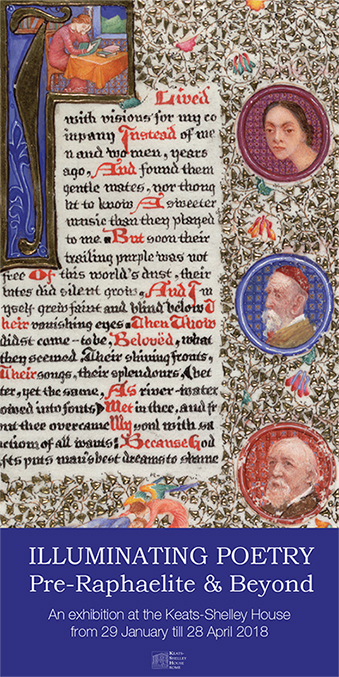 I Lived
with visions for my co
mpany Instead of me
n and women, years
ago, And found them
gentle mates, nor thoug
ht to know A sweeter
music than they played
to me. But soon their
trailing purple was not
free Of this world's dust, their
lutes did silent grow, And I m
yself grew faint and blind below T
heir vanishing eyes. Then Thow
didst come - to be, Belovëd, what
they seemed. Their shining fronts,
Their songs, their splendours (bet
ter, yet the same, As river-water
owed into fonts) Met in thee, and fr
out thee overcame My soul with sa
action of all wants: Because God
fts puts man's best dreams to shame
ILLUMINATING POETRY
Pre-Raphaelite & Beyond
An exhibition at the Keats-Shelley House
from 29 January till 28 April 2018
KEATS-
SHELLEY
HOUSE
ROME